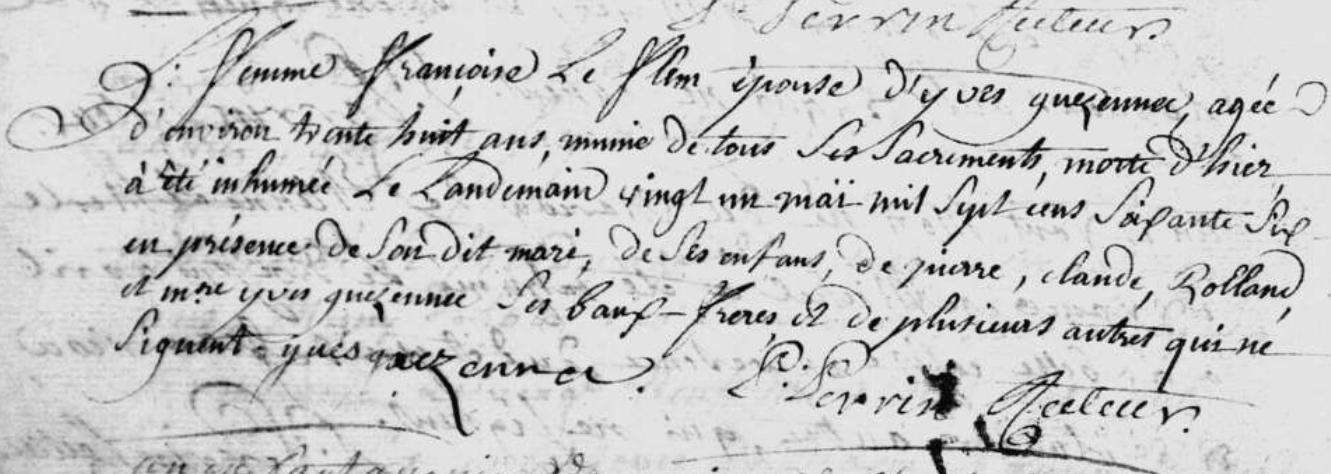 Perrin Recteur
femme françoise Le flem épouse d'yves guezennec, agée
d'environ trante huit ans, munie de tous ses Sacrements, morte d'hier
à été inhumée Le Landemain vingt un maï mil sept cens soixante-six
en présence de son dit mari, de ses enfans, de pierre, claude, Rolland,
et mre yves guezennec ses baux-freres, et de plusieurs autres qui né
signent - yves guezennec. P: Perrin Recteur.